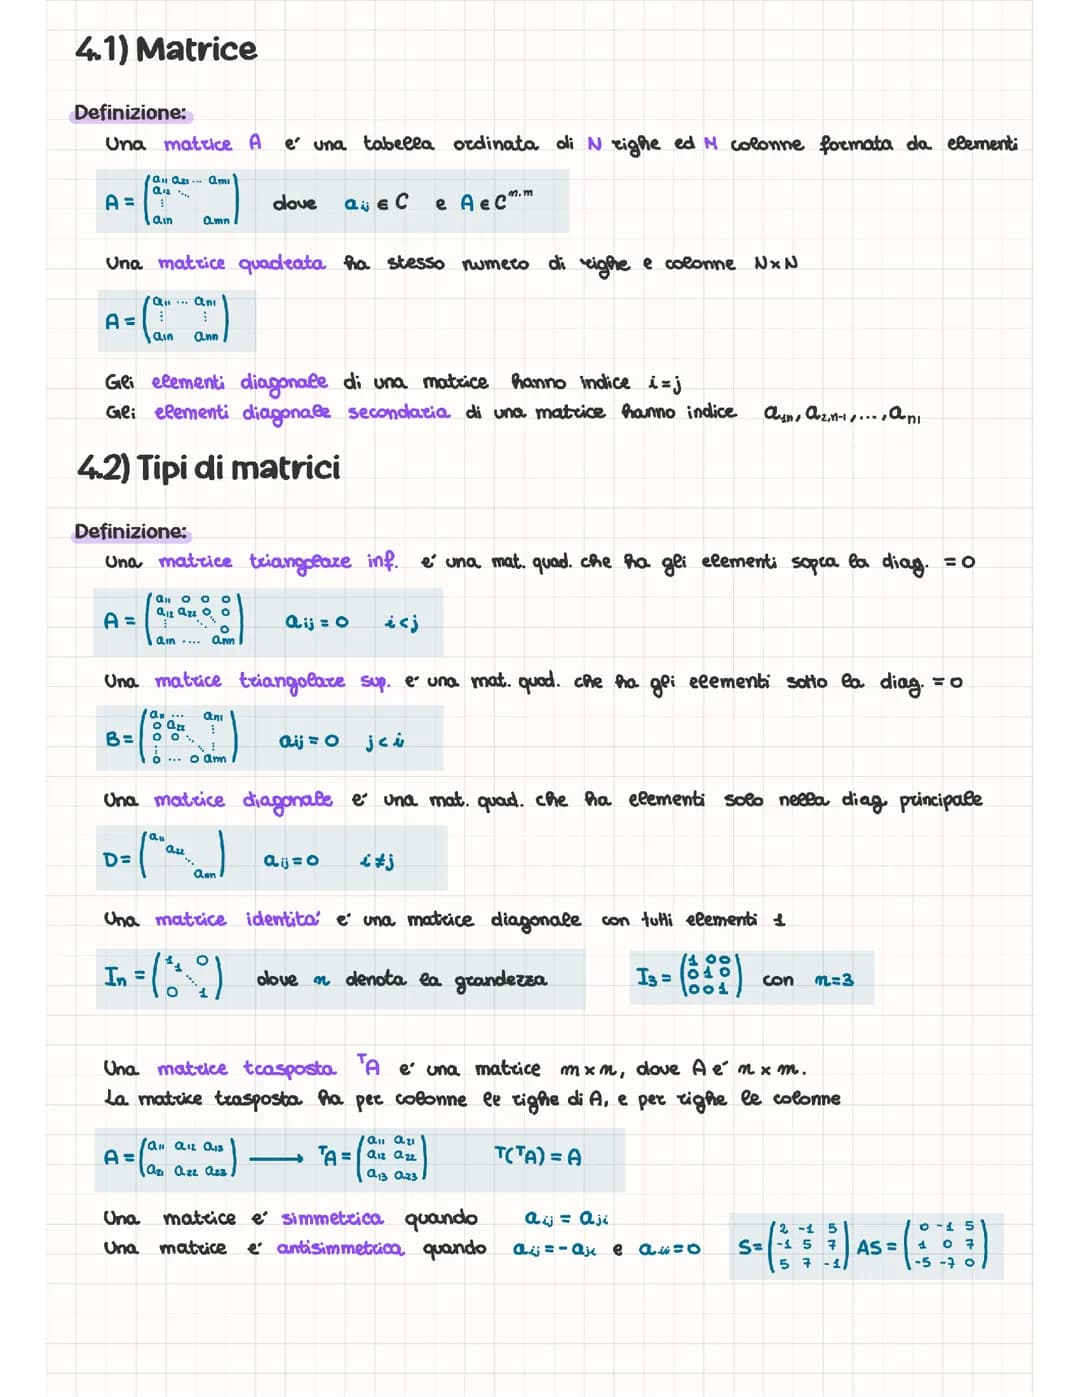 4.1) Matrice
Definizione:
Una matrice A e' una tabella ordinata di N righe ed M colonne formata da elementi
A = ( a₁₁ a₂₁ ... aₘ₁
a₁₂ ⋱
⋮
a₁ₙ aₘₙ ) dove aᵢⱼ ∈ C e A ∈ Cⁿ·ᵐ
Una matrice quadrata ha stesso numero di righe e colonne N×N
A = ( a₁₁ ... aₙ₁
⋮ ⋮
a₁ₙ aₙₙ )
Gli elementi diagonale di una matrice hanno indice i=j
Gli elementi diagonale secondaria di una matrice hanno indice a₁ₙ, a₂,ₙ₋₁, ..., aₙ₁
4.2) Tipi di matrici
Definizione:
Una matrice triangolare inf. e' una mat. quad. che ha gli elementi sopra la diag. = 0
A = ( a₁₁ 0 0 0
a₁₂ a₂₂ 0 0
⋮ ⋱ 0
a₁ₙ .... aₙₙ ) aᵢⱼ = 0 i<j
Una matrice triangolare sup. e' una mat. quad. che ha gli elementi sotto la diag. = 0
B = ( a₁₁ ... aₙ₁
0 a₂₂ ⋮
0 0 ⋱ ⋮
0 ... 0 aₙₙ ) aᵢⱼ = 0 j<i
Una matrice diagonale e' una mat. quad. che ha elementi solo nella diag. principale
D = ( a₁₁
a₂₂
⋱
aₙₙ ) aᵢⱼ = 0 i≠j
Una matrice identita' e' una matrice diagonale con tutti elementi 1
Iₙ = ( 1 0
1
⋱
0 1 ) dove n denota la grandezza I₃ = ( 1 0 0
0 1 0
0 0 1 ) con n=3
Una matrice trasposta ᵀA e' una matrice m×n, dove A e' n×m.
La matrice trasposta ha per colonne le righe di A, e per righe le colonne
A = ( a₁₁ a₁₂ a₁₃
a₂₁ a₂₂ a₂₃ ) ⟶ ᵀA = ( a₁₁ a₂₁
a₁₂ a₂₂
a₁₃ a₂₃ ) T(ᵀA) = A
Una matrice e' simmetrica quando aᵢⱼ = aⱼᵢ
Una matrice e' antisimmetrica quando aᵢⱼ = -aⱼᵢ e aᵢᵢ = 0
S = ( 2 -1 5
-1 5 7
5 7 -1 ) AS = ( 0 -1 5
1 0 7
-5 -7 0 )